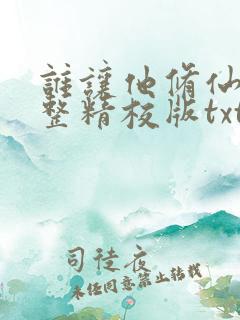 誰讓他修仙
整精校版txt
司徒夜
未经同意禁止转载